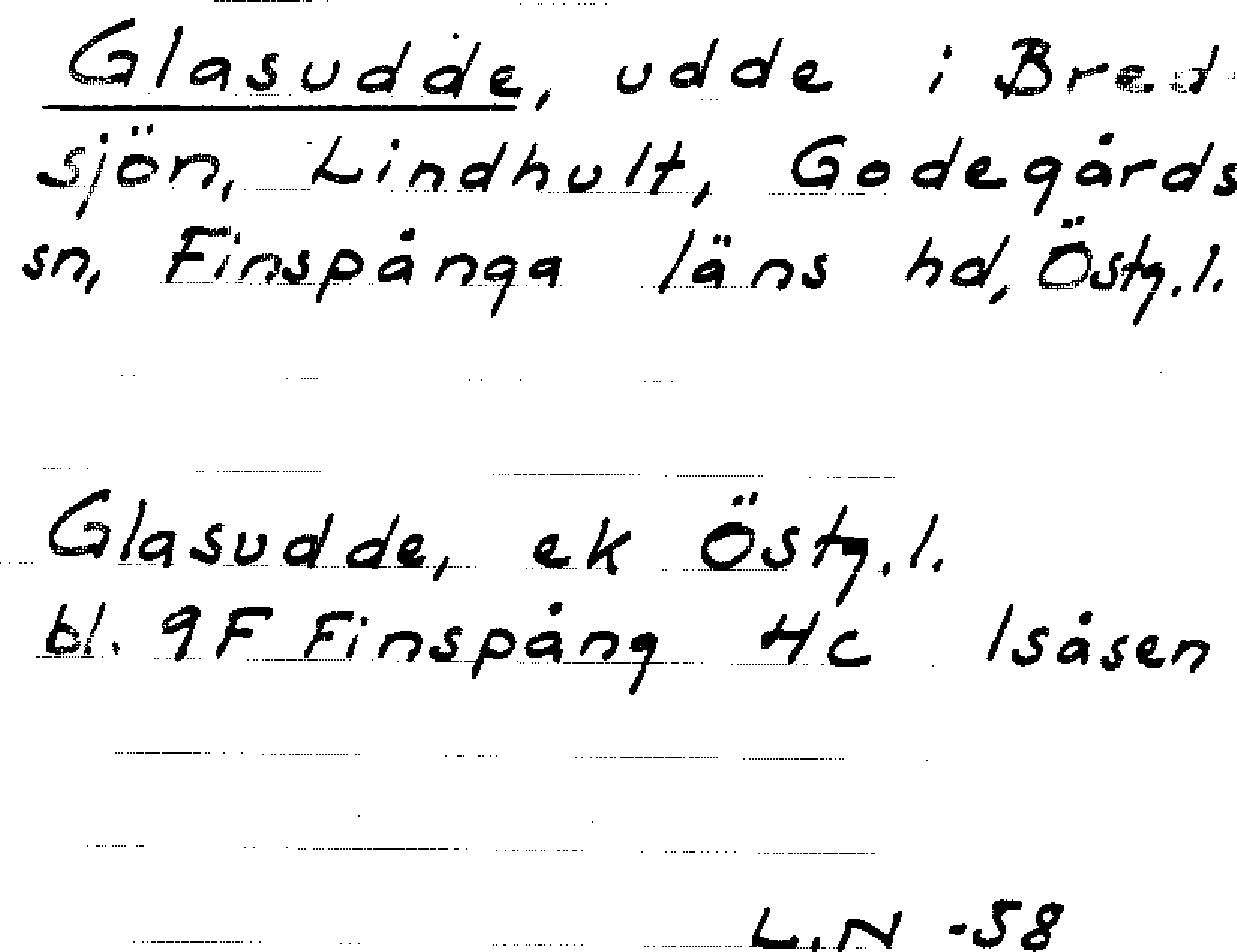 Glasudde, udde i Bred-
sjön, Lindhult, Godegårds
sn, Finspånga läns hd, Östg.l.
Glasudde, ek Östg.l.
bl. 9F Finspång 4c Isåsen
L.N -58